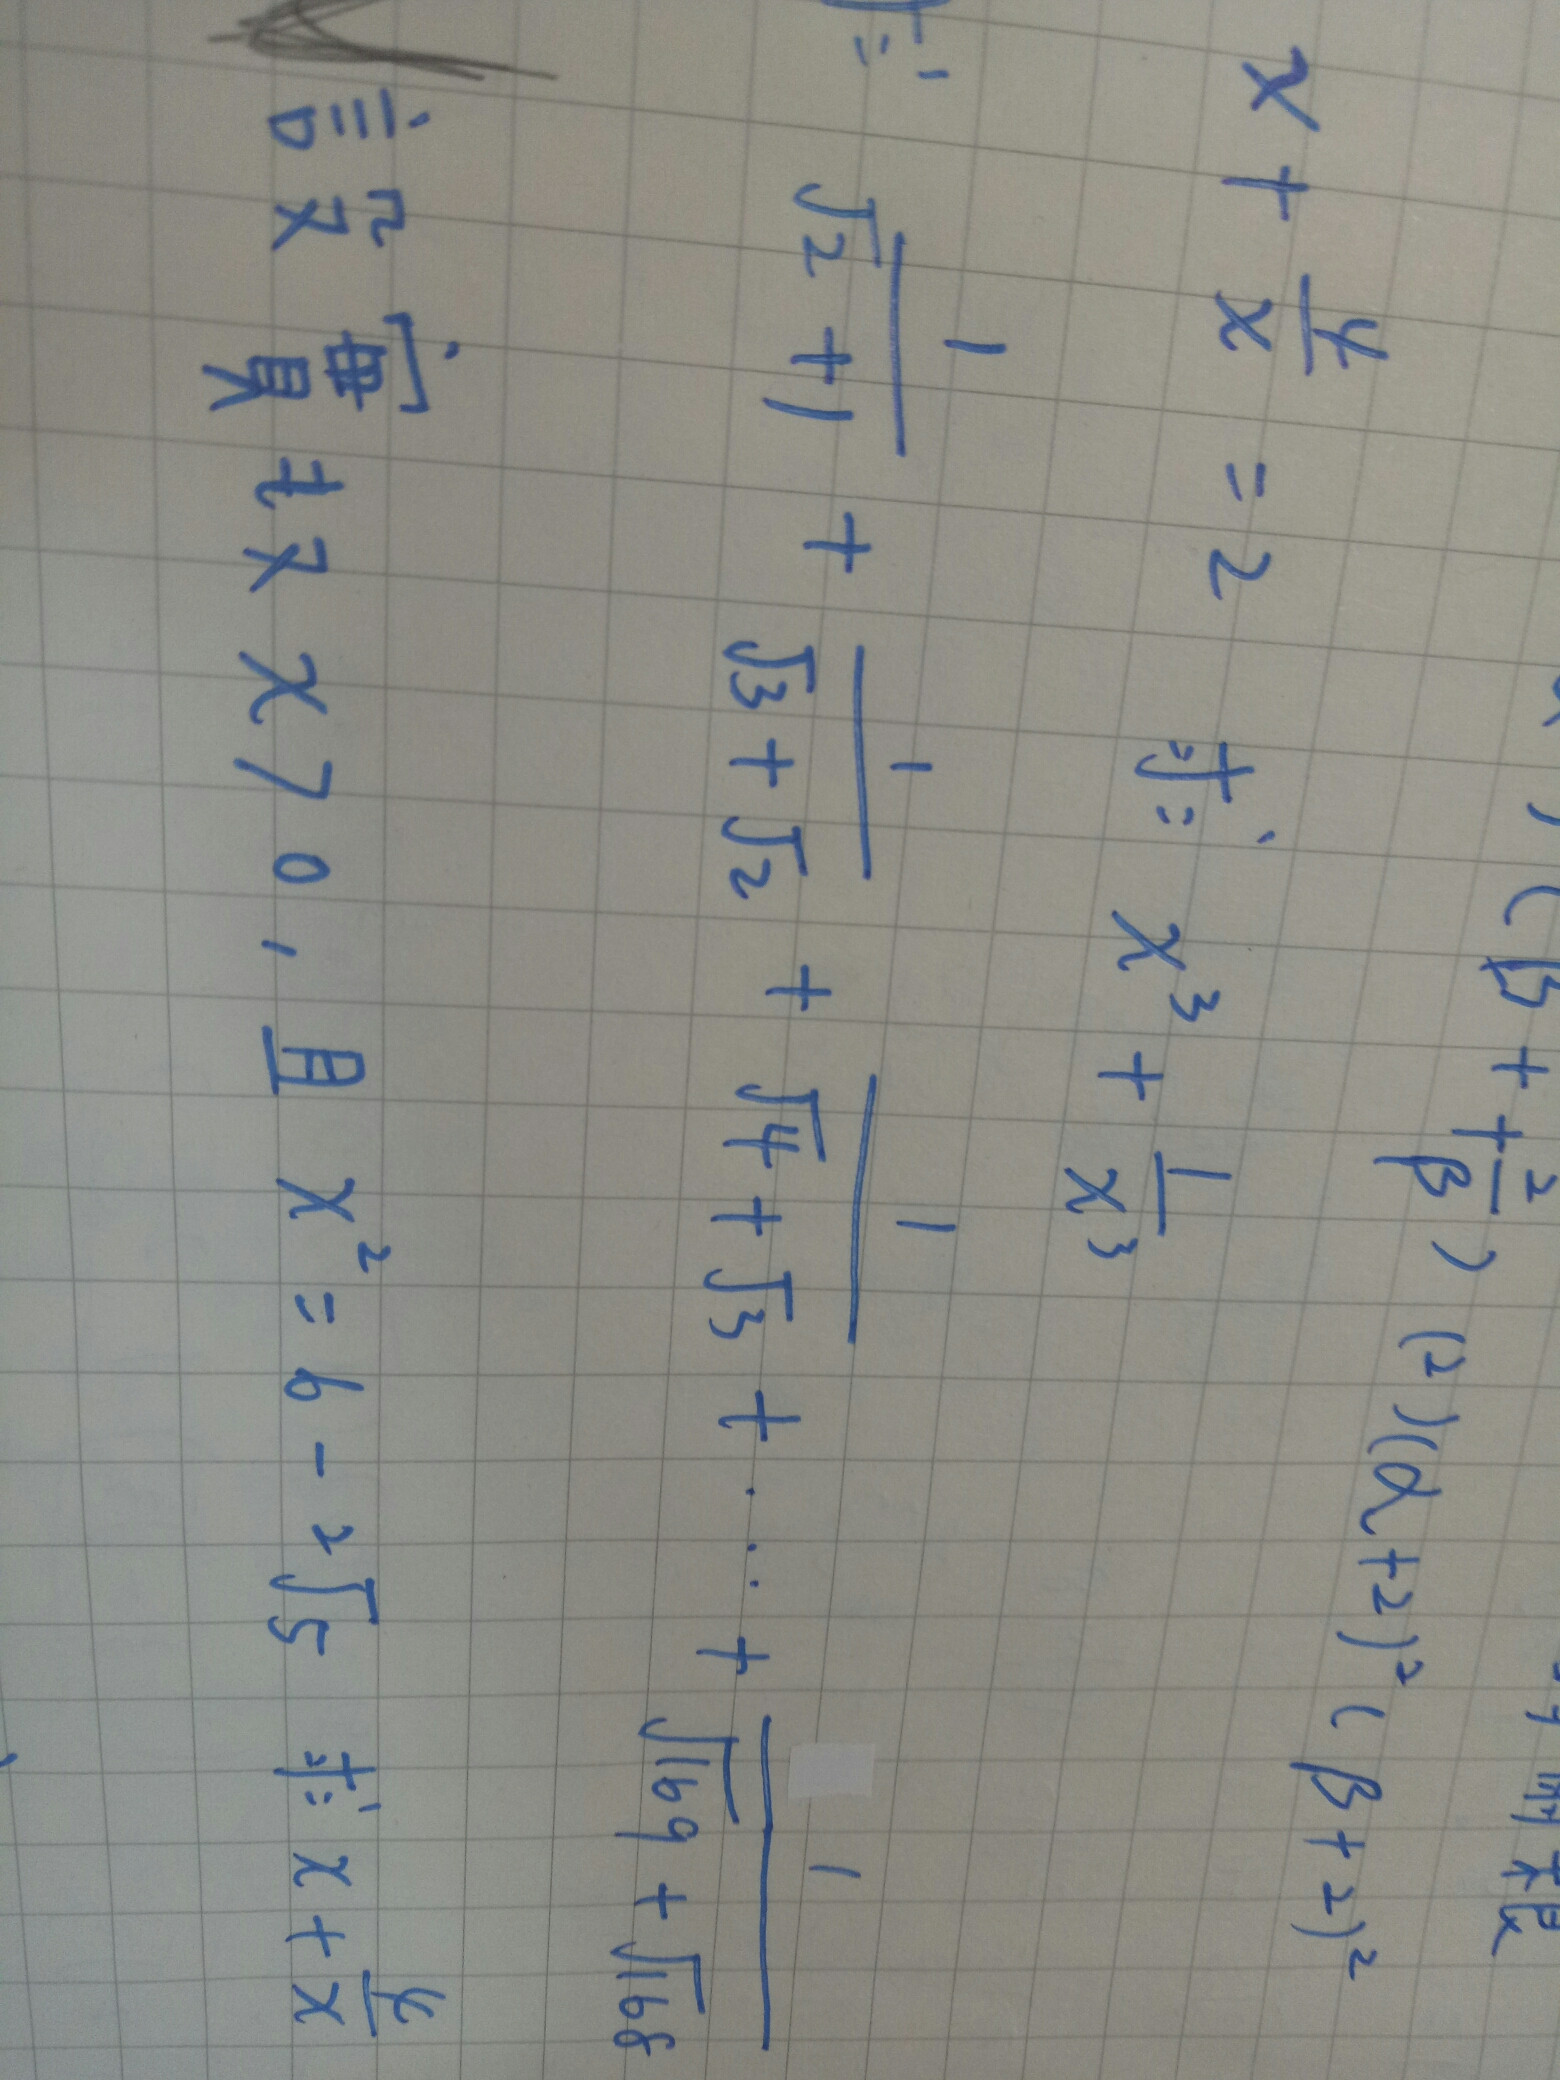 (β + 2/β) (2)(α+2)² (β+2)²
x + 4/x = 2 求: x³ + 1/x³
求: 1/(√2 + 1) + 1/(√3 + √2) + 1/(√4 + √3) + ... + 1/(√169 + √168)
設實數 x > 0, 且 x² = 6 - 2√5 求: x + 4/x